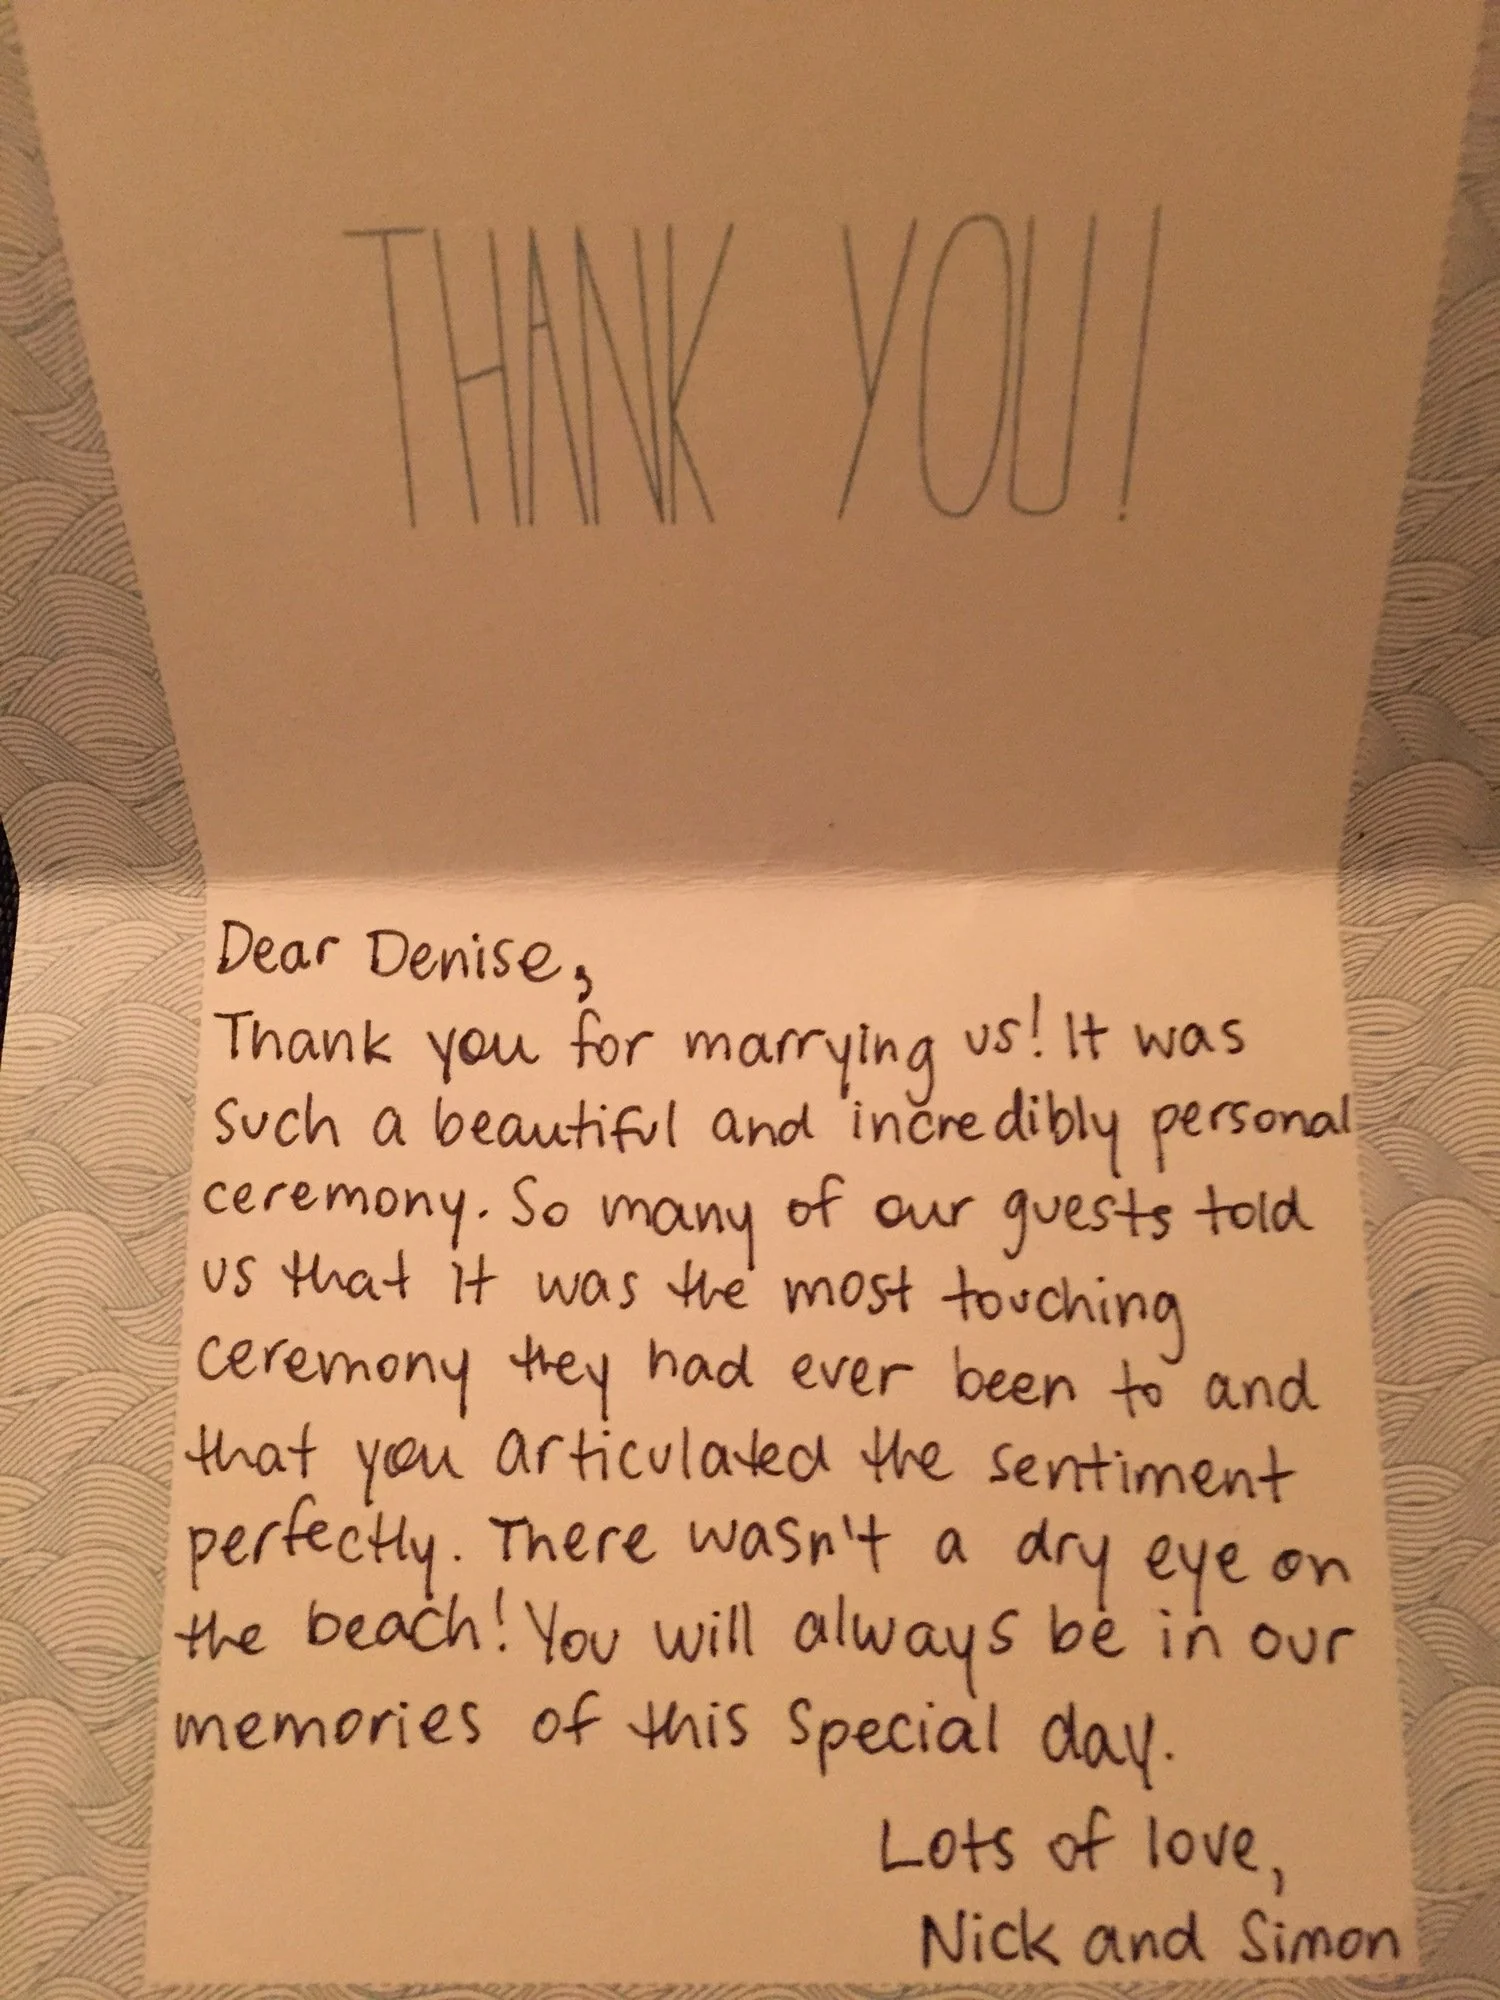 THANK YOU!
Dear Denise,
Thank you for marrying us! It was
such a beautiful and incredibly personal
ceremony. So many of our guests told
us that it was the most touching
ceremony they had ever been to and
that you articulated the sentiment
perfectly. There wasn't a dry eye on
the beach! You will always be in our
memories of this special day.
Lots of love,
Nick and Simon